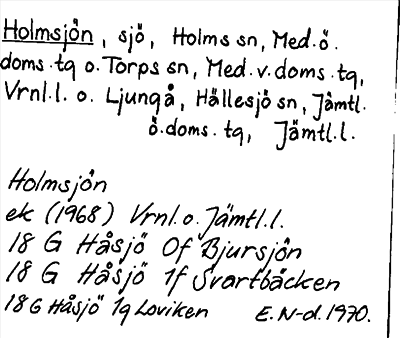 Holmsjön, sjö, Holms sn, Med.ö.
doms.tg o. Torps sn, Med.v.doms.tg,
Vrnl.l. o. Ljungå, Hällesjö sn, Jämtl.
ö.doms.tg, Jämtl.l.
Holmsjön
ek (1968) Vrnl.o.Jämtl.l.
18 G Håsjö 0f Bjursjön
18 G Håsjö 1f Svartbäcken
18 G Håsjö 1g Loviken E.N-d.1970.